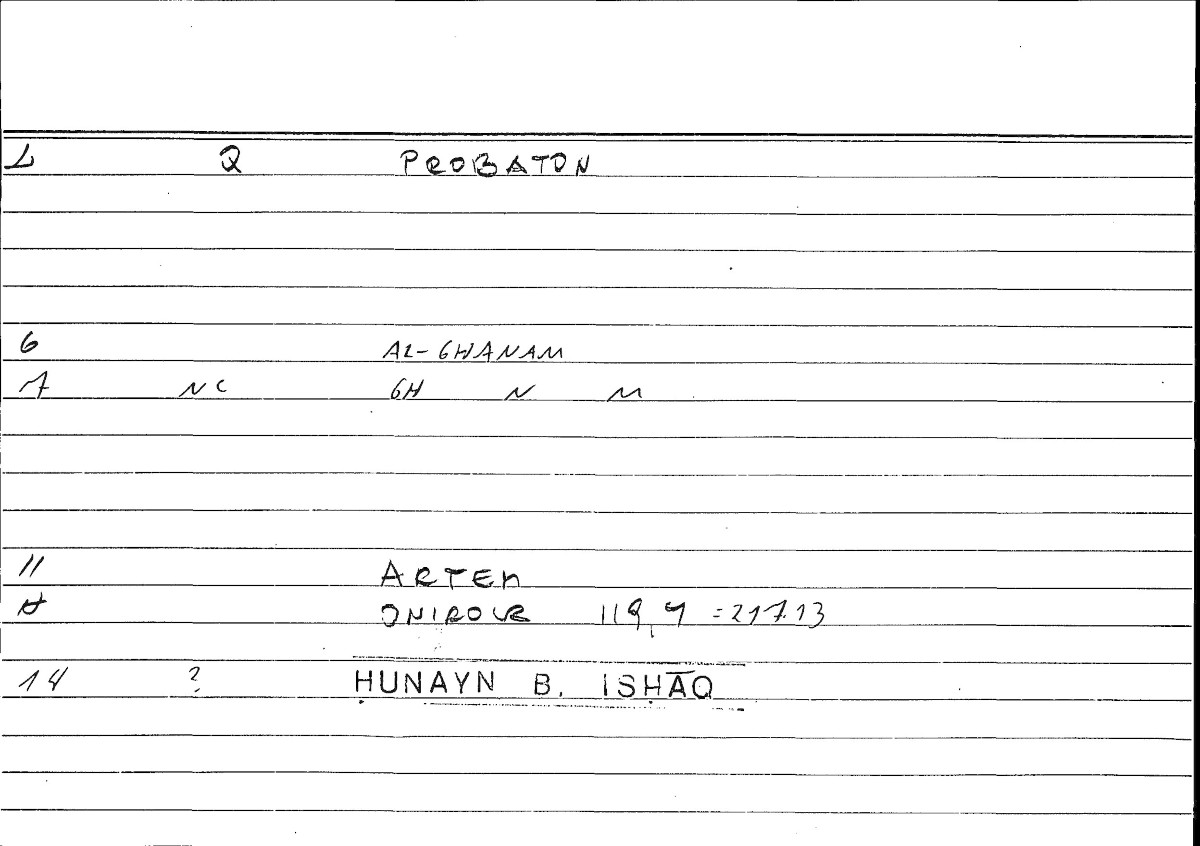 1 2 PROBATON
6 AL-GHANAM
7 NC GH N M
11 ARTEM
ONIROCR 119,9 = 217.13
14 ? ḤUNAYN B. ISḤĀQ